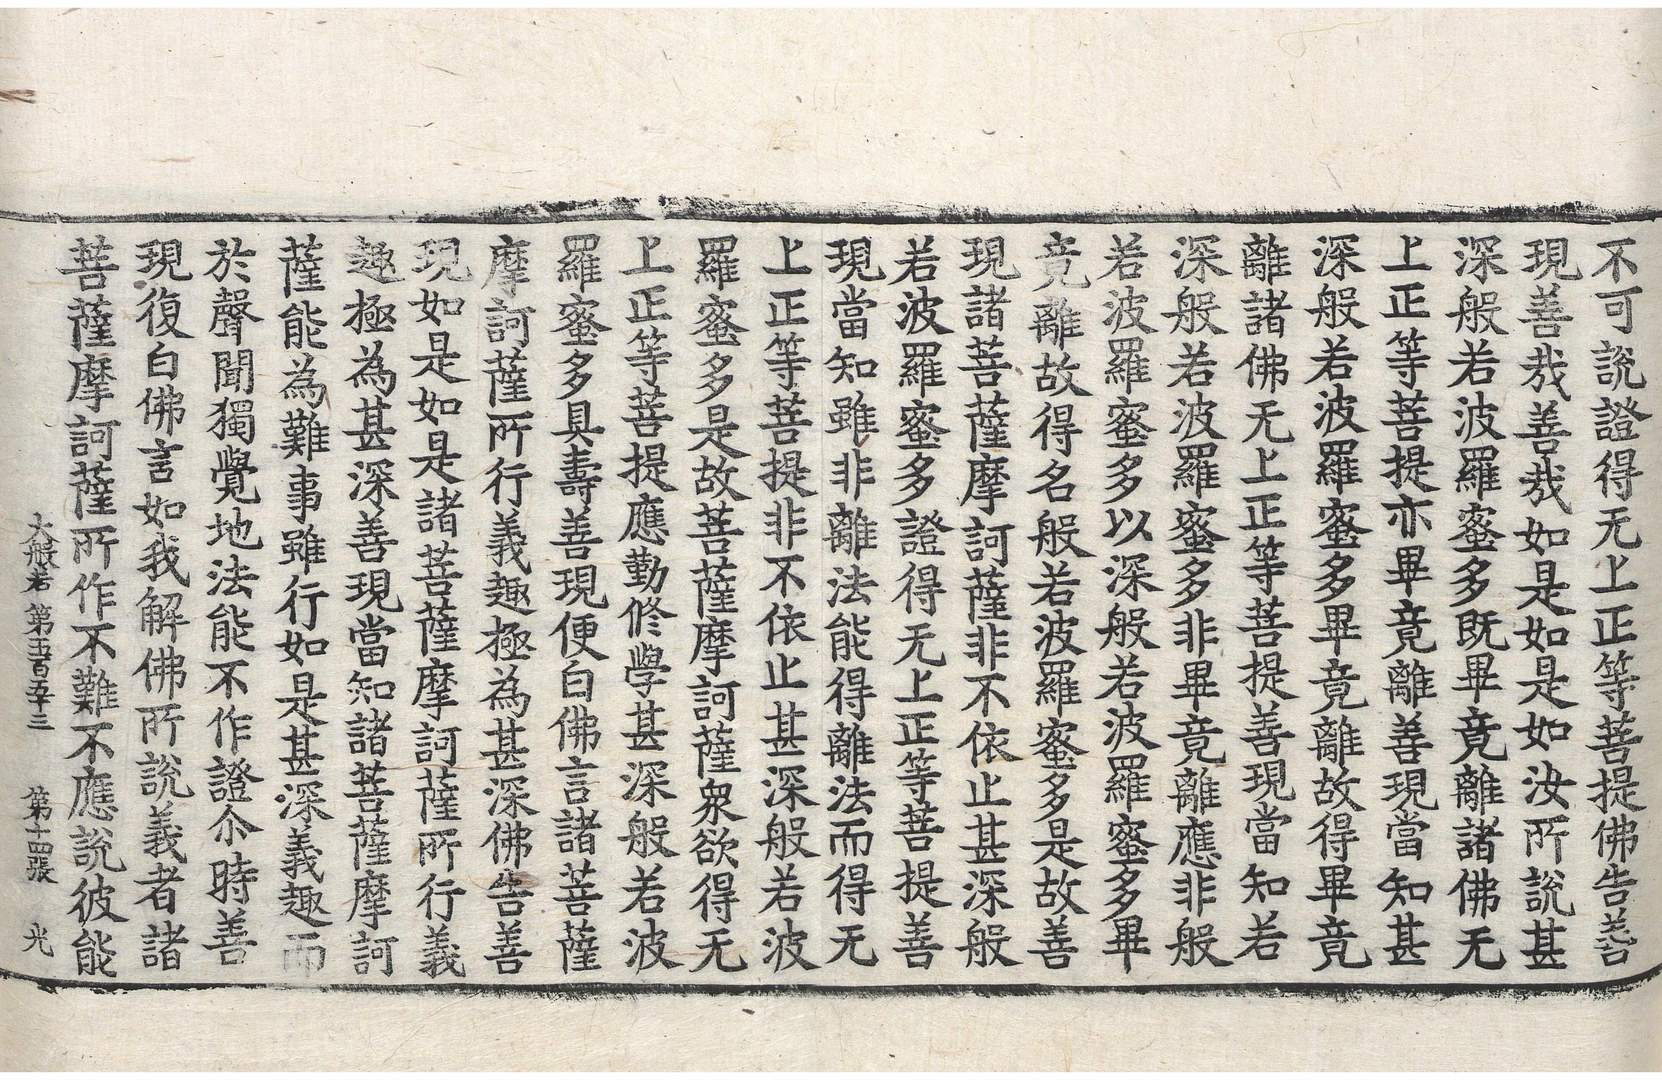 不可說證得无上正等菩提佛告善
現善哉善哉如是如是如汝所說甚
深般若波羅蜜多既畢竟離諸佛无
上正等菩提亦畢竟離善現當知甚
深般若波羅蜜多畢竟離故得畢竟
離諸佛无上正等菩提善現當知若
深般若波羅蜜多非畢竟離應非般
若波羅蜜多以深般若波羅蜜多畢
竟離故得名般若波羅蜜多是故善
現諸菩薩摩訶薩非不依止甚深般
若波羅蜜多證得无上正等菩提善
現當知雖非離法能得離法而得无
上正等菩提非不依止甚深般若波
羅蜜多是故菩薩摩訶薩衆欲得无
上正等菩提應勤修學甚深般若波
羅蜜多具壽善現便白佛言諸菩薩
摩訶薩所行義趣極為甚深佛告善
現如是如是諸菩薩摩訶薩所行義
趣極為甚深善現當知諸菩薩摩訶
薩能為難事雖行如是甚深義趣而
於聲聞獨覺地法能不作證尒時善
現復白佛言如我解佛所說義者諸
菩薩摩訶薩所作不難不應說彼能
大般若 第五百五十三 第十四張 光